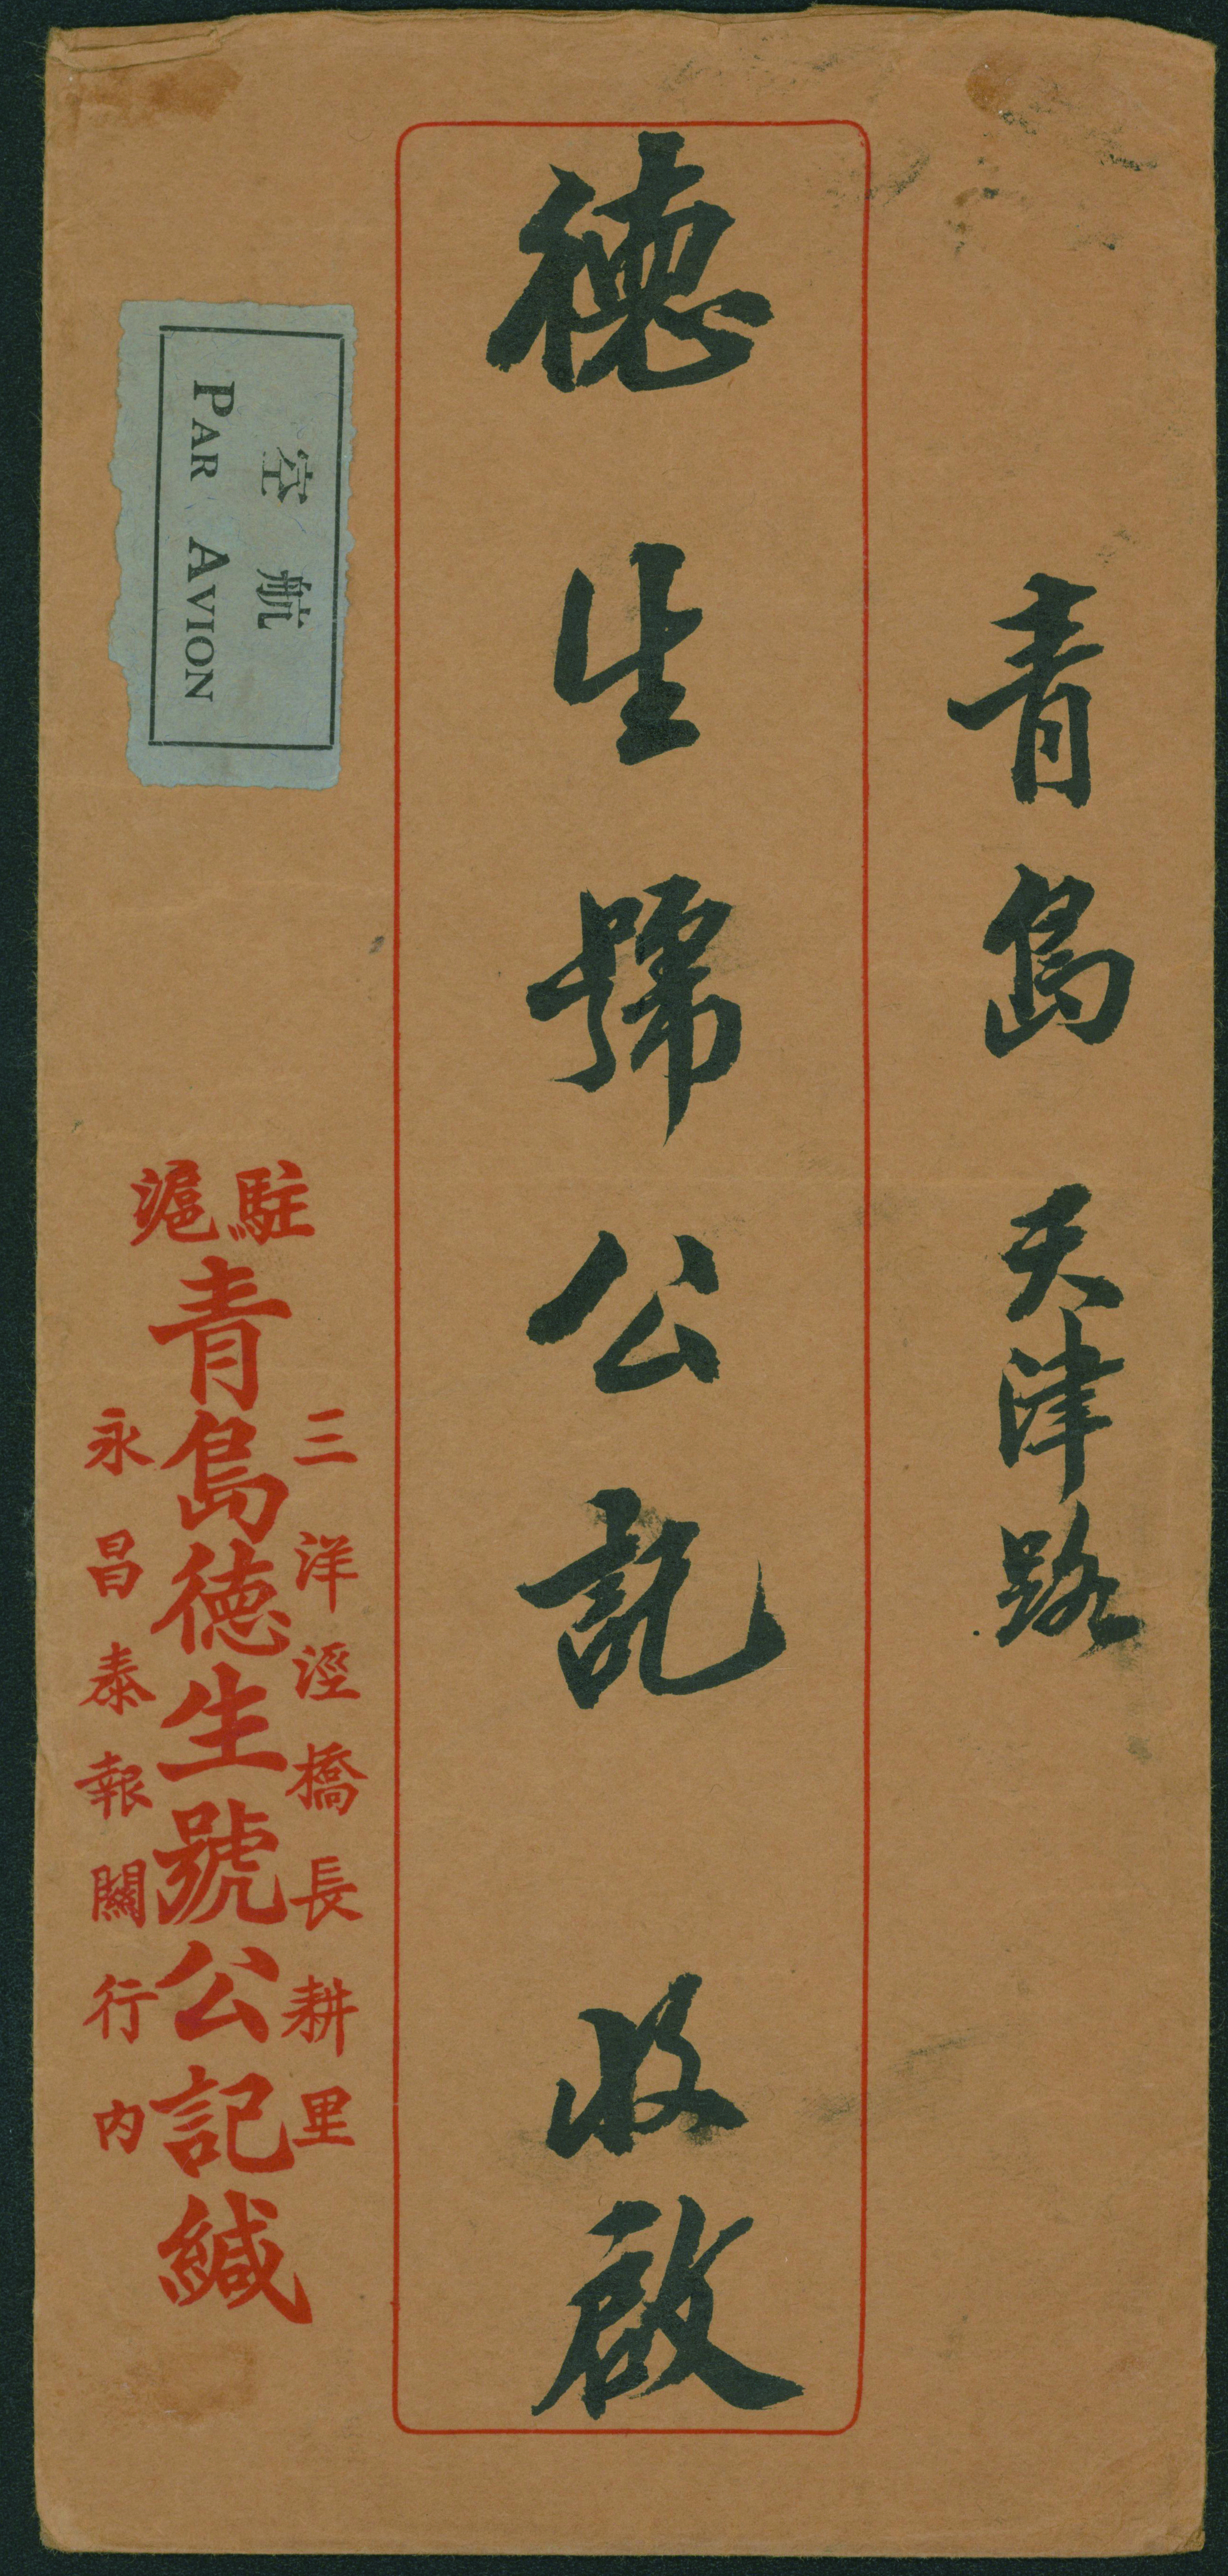 青島 天津路
德生號公記 收啟
駐滬
三洋涇橋長耕里
青島德生號公記緘
永昌泰報關行內
空航
PAR AVION